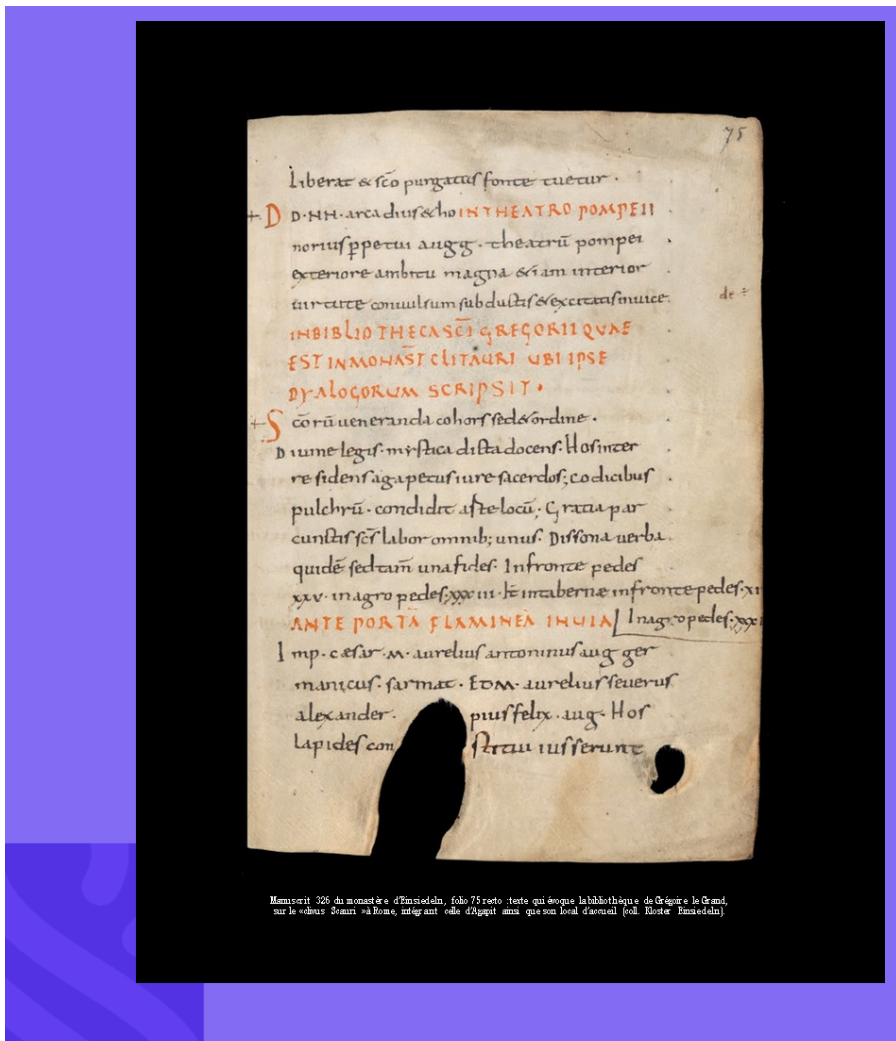 75
Liberat & sc̄o purgatus fonte tuetur ·
+ D D · NN · arcadius & ho IN THEATRO POMPEII
norius ꝑpetui augg · theatrū pompei
exteriore ambitu magna & iam interior
uirtute conuulsum subductis & excitatis inuice
de ÷
IN BIBLIOTHECA SC̄I GREGORII QVAE
EST IN MONAST̄ CLITAURI UBI IPSE
DYALOGORUM SCRIPSIT ·
+ S cōrū ueneranda cohors sed & ordine ·
Diuine legis · mystica dicta docens · Hos inter
residens agapetus iure sacerdos; codicibus
pulchrū · condidit arte locū; Gratia par
cunctis sc̄s labor omnib; unus · Dissona uerba
quidē sed tam̄ una fides · In fronte pedes
xxv · in agro pedes · xxx iii · It̄ in tabernæ in fronte pedes · xi
ANTE PORTĀ FLAMINEA IN UIA In agro pedes · xxx
Imp · cæsar · M · aurelius antoninus aug ger
manicus · sarmat · ET M · aurelius seuerus
alexander · pius felix · aug · Hos
Lapides con stitui iusserunt
Manuscrit 326 du monastère d'Einsiedeln, folio 75 recto : texte qui évoque la bibliothèque de Grégoire le Grand,
sur le «clivus Scauri » à Rome, intégrant celle d'Agapit ainsi que son local d'accueil (coll. Kloster Einsiedeln).